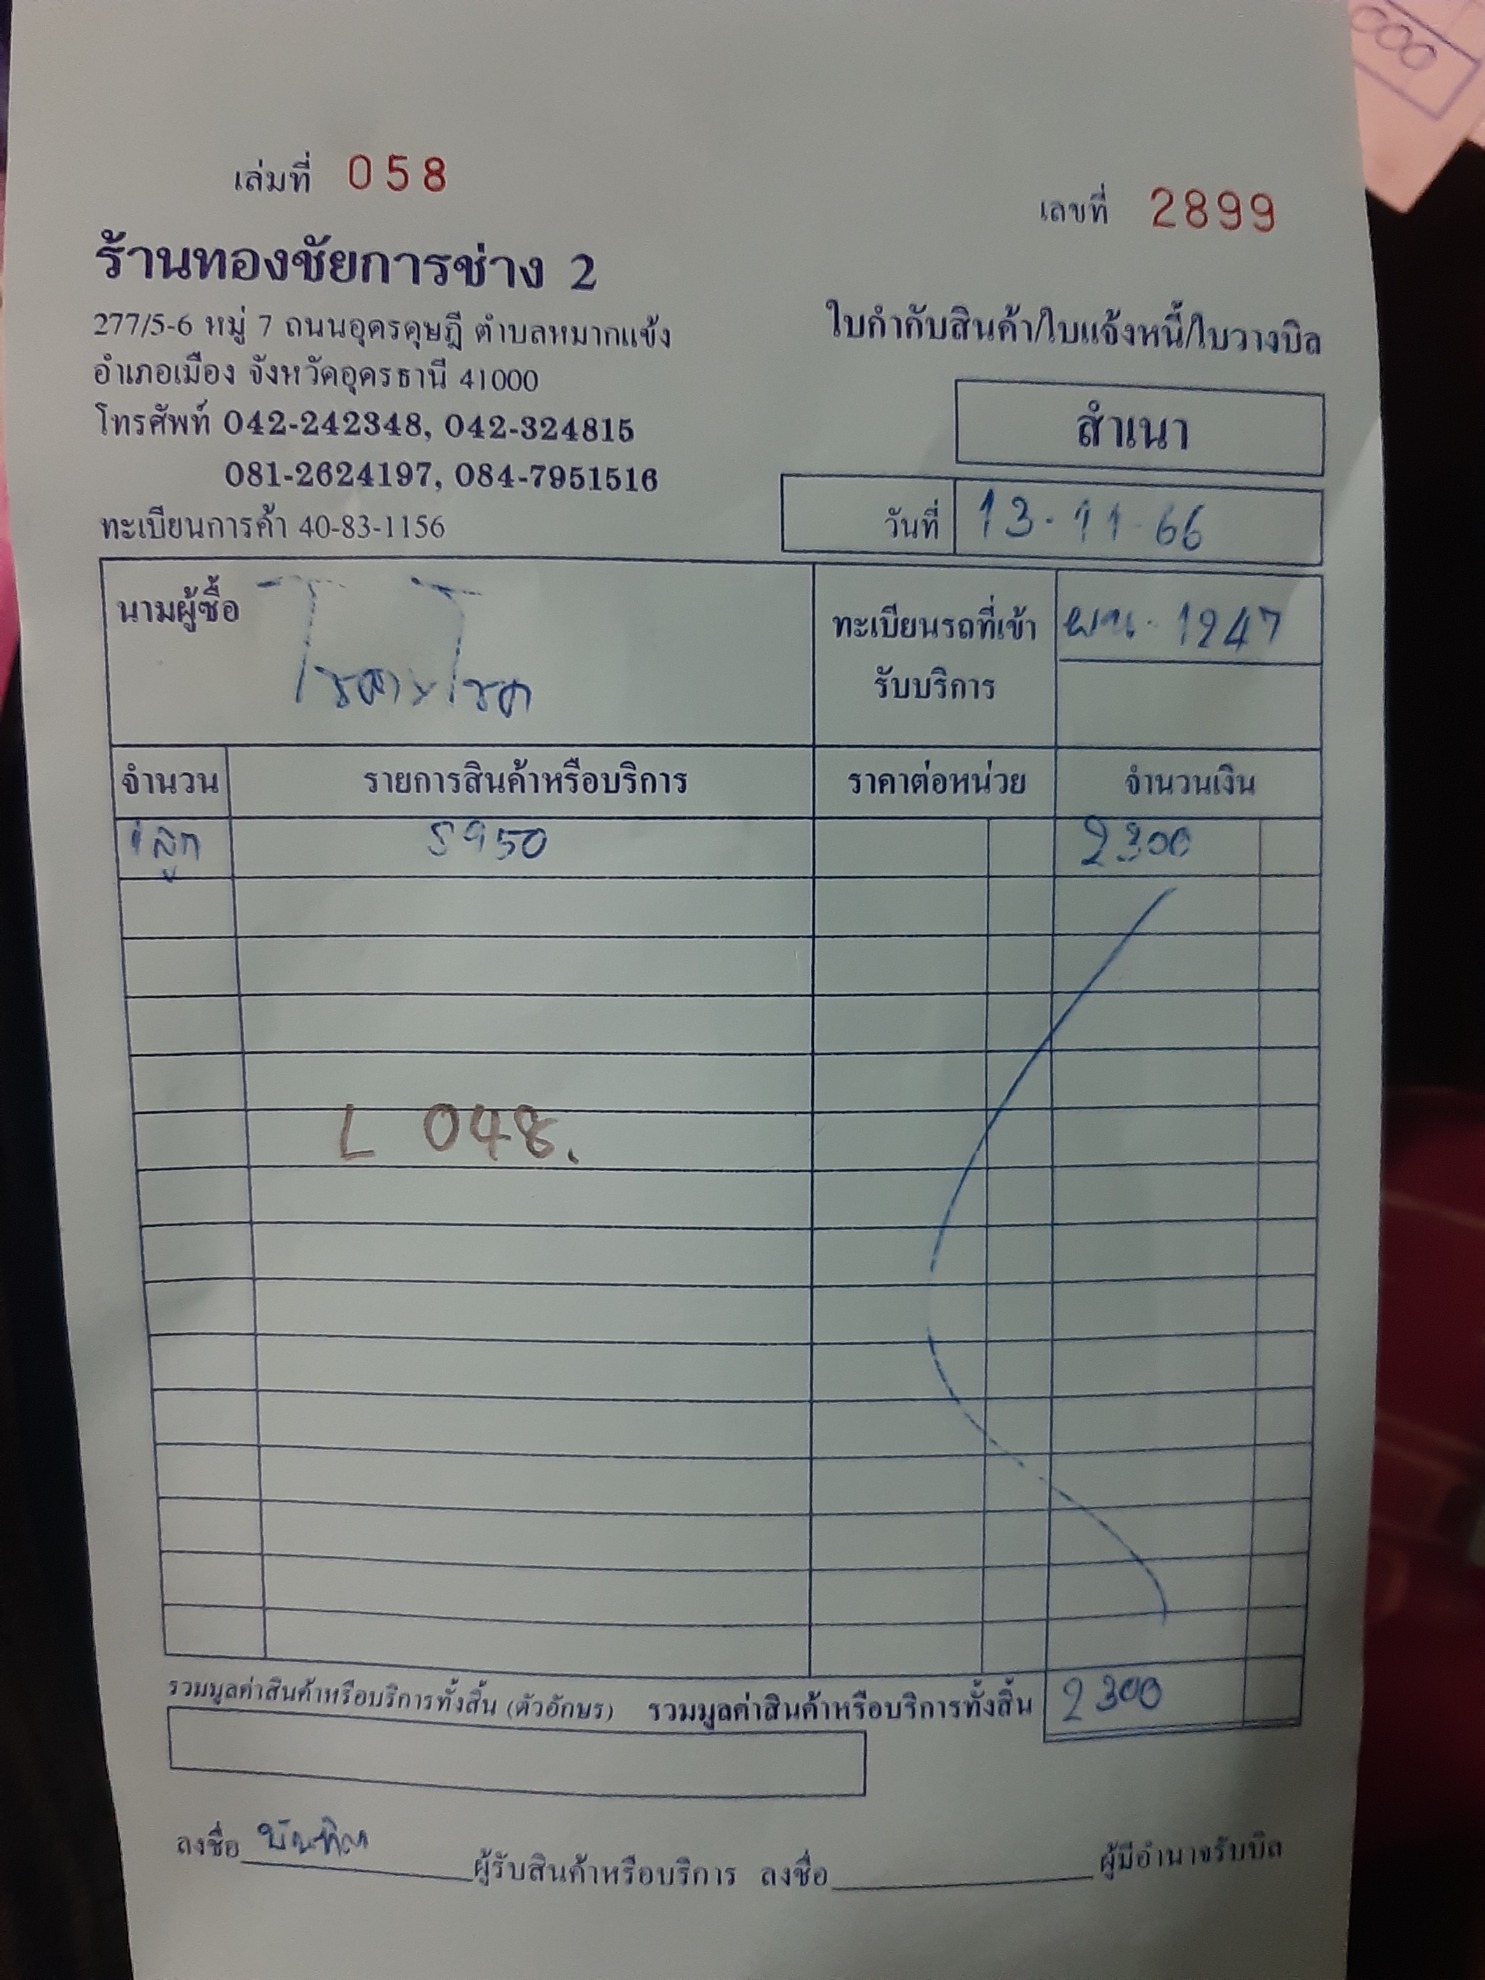 000
เล่มที่ 058
เลขที่ 2899
ร้านทองชัยการช่าง 2
277/5-6 หมู่ 7 ถนนอุดรดุษฎี ตำบลหมากแข้ง
อำเภอเมือง จังหวัดอุดรธานี 41000
โทรศัพท์ 042-242348, 042-324815
081-2624197, 084-7951516
ทะเบียนการค้า 40-83-1156
ใบกำกับสินค้า/ใบแจ้งหนี้/ใบวางบิล
สำเนา
วันที่ 13-11-66
นามผู้ซื้อ
ทะเบียนรถที่เข้า
รับบริการ
ผน. 1247
จำนวน รายการสินค้าหรือบริการ ราคาต่อหน่วย จำนวนเงิน
1ลูก S950 2300
L 048.
รวมมูลค่าสินค้าหรือบริการทั้งสิ้น (ตัวอักษร) รวมมูลค่าสินค้าหรือบริการทั้งสิ้น 2300
ลงชื่อ บัณฑิต ผู้รับสินค้าหรือบริการ ลงชื่อ ผู้มีอำนาจรับบิล